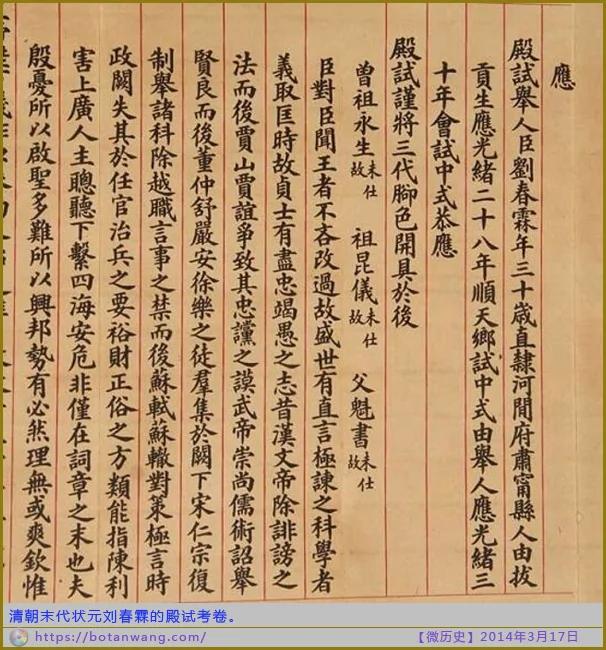 應
殿試舉人臣劉春霖年三十歲直隸河間府肅甯縣人由拔
貢生應光緒二十八年順天鄉試中式由舉人應光緒三
十年會試中式恭應
殿試謹將三代腳色開具於後
曾祖永生未仕故 祖昆儀未仕故 父魁書未仕故
臣對臣聞王者不吝改過故盛世有直言極諫之科學者
義取匡時故貞士有盡忠竭愚之志昔漢文帝除誹謗之
法而後賈山賈誼爭致其忠讜之謨武帝崇尚儒術詔舉
賢良而後董仲舒嚴安徐樂之徒羣集於闕下宋仁宗復
制舉諸科除越職言事之禁而後蘇軾蘇轍對策極言時
政闕失其於任官治兵之要裕財正俗之方類能指陳利
害上廣人主聰聽下繫四海安危非僅在詞章之末也夫
殷憂所以啟聖多難所以興邦勢有必然理無或爽欽惟
清朝末代状元刘春霖的殿试考卷。
https://botanwang.com/
【微历史】2014年3月17日